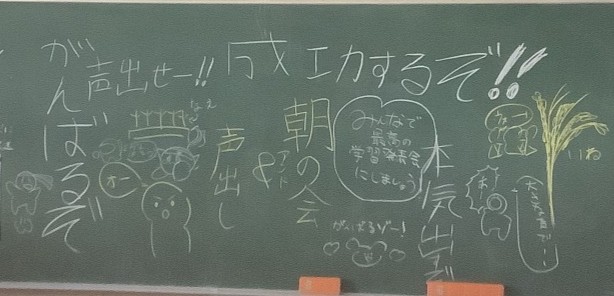 成工力するぞ!!
声出せー!!
がんばるぞ
なえ
声出し
&
アンド
朝の会
みんなで
最高の
学習発表会
にしましょう
本気出すぞ
がんばるゾー!
オー
いね